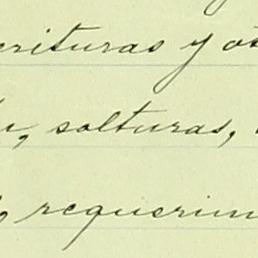 crituras y ot
, solturas,
requerim